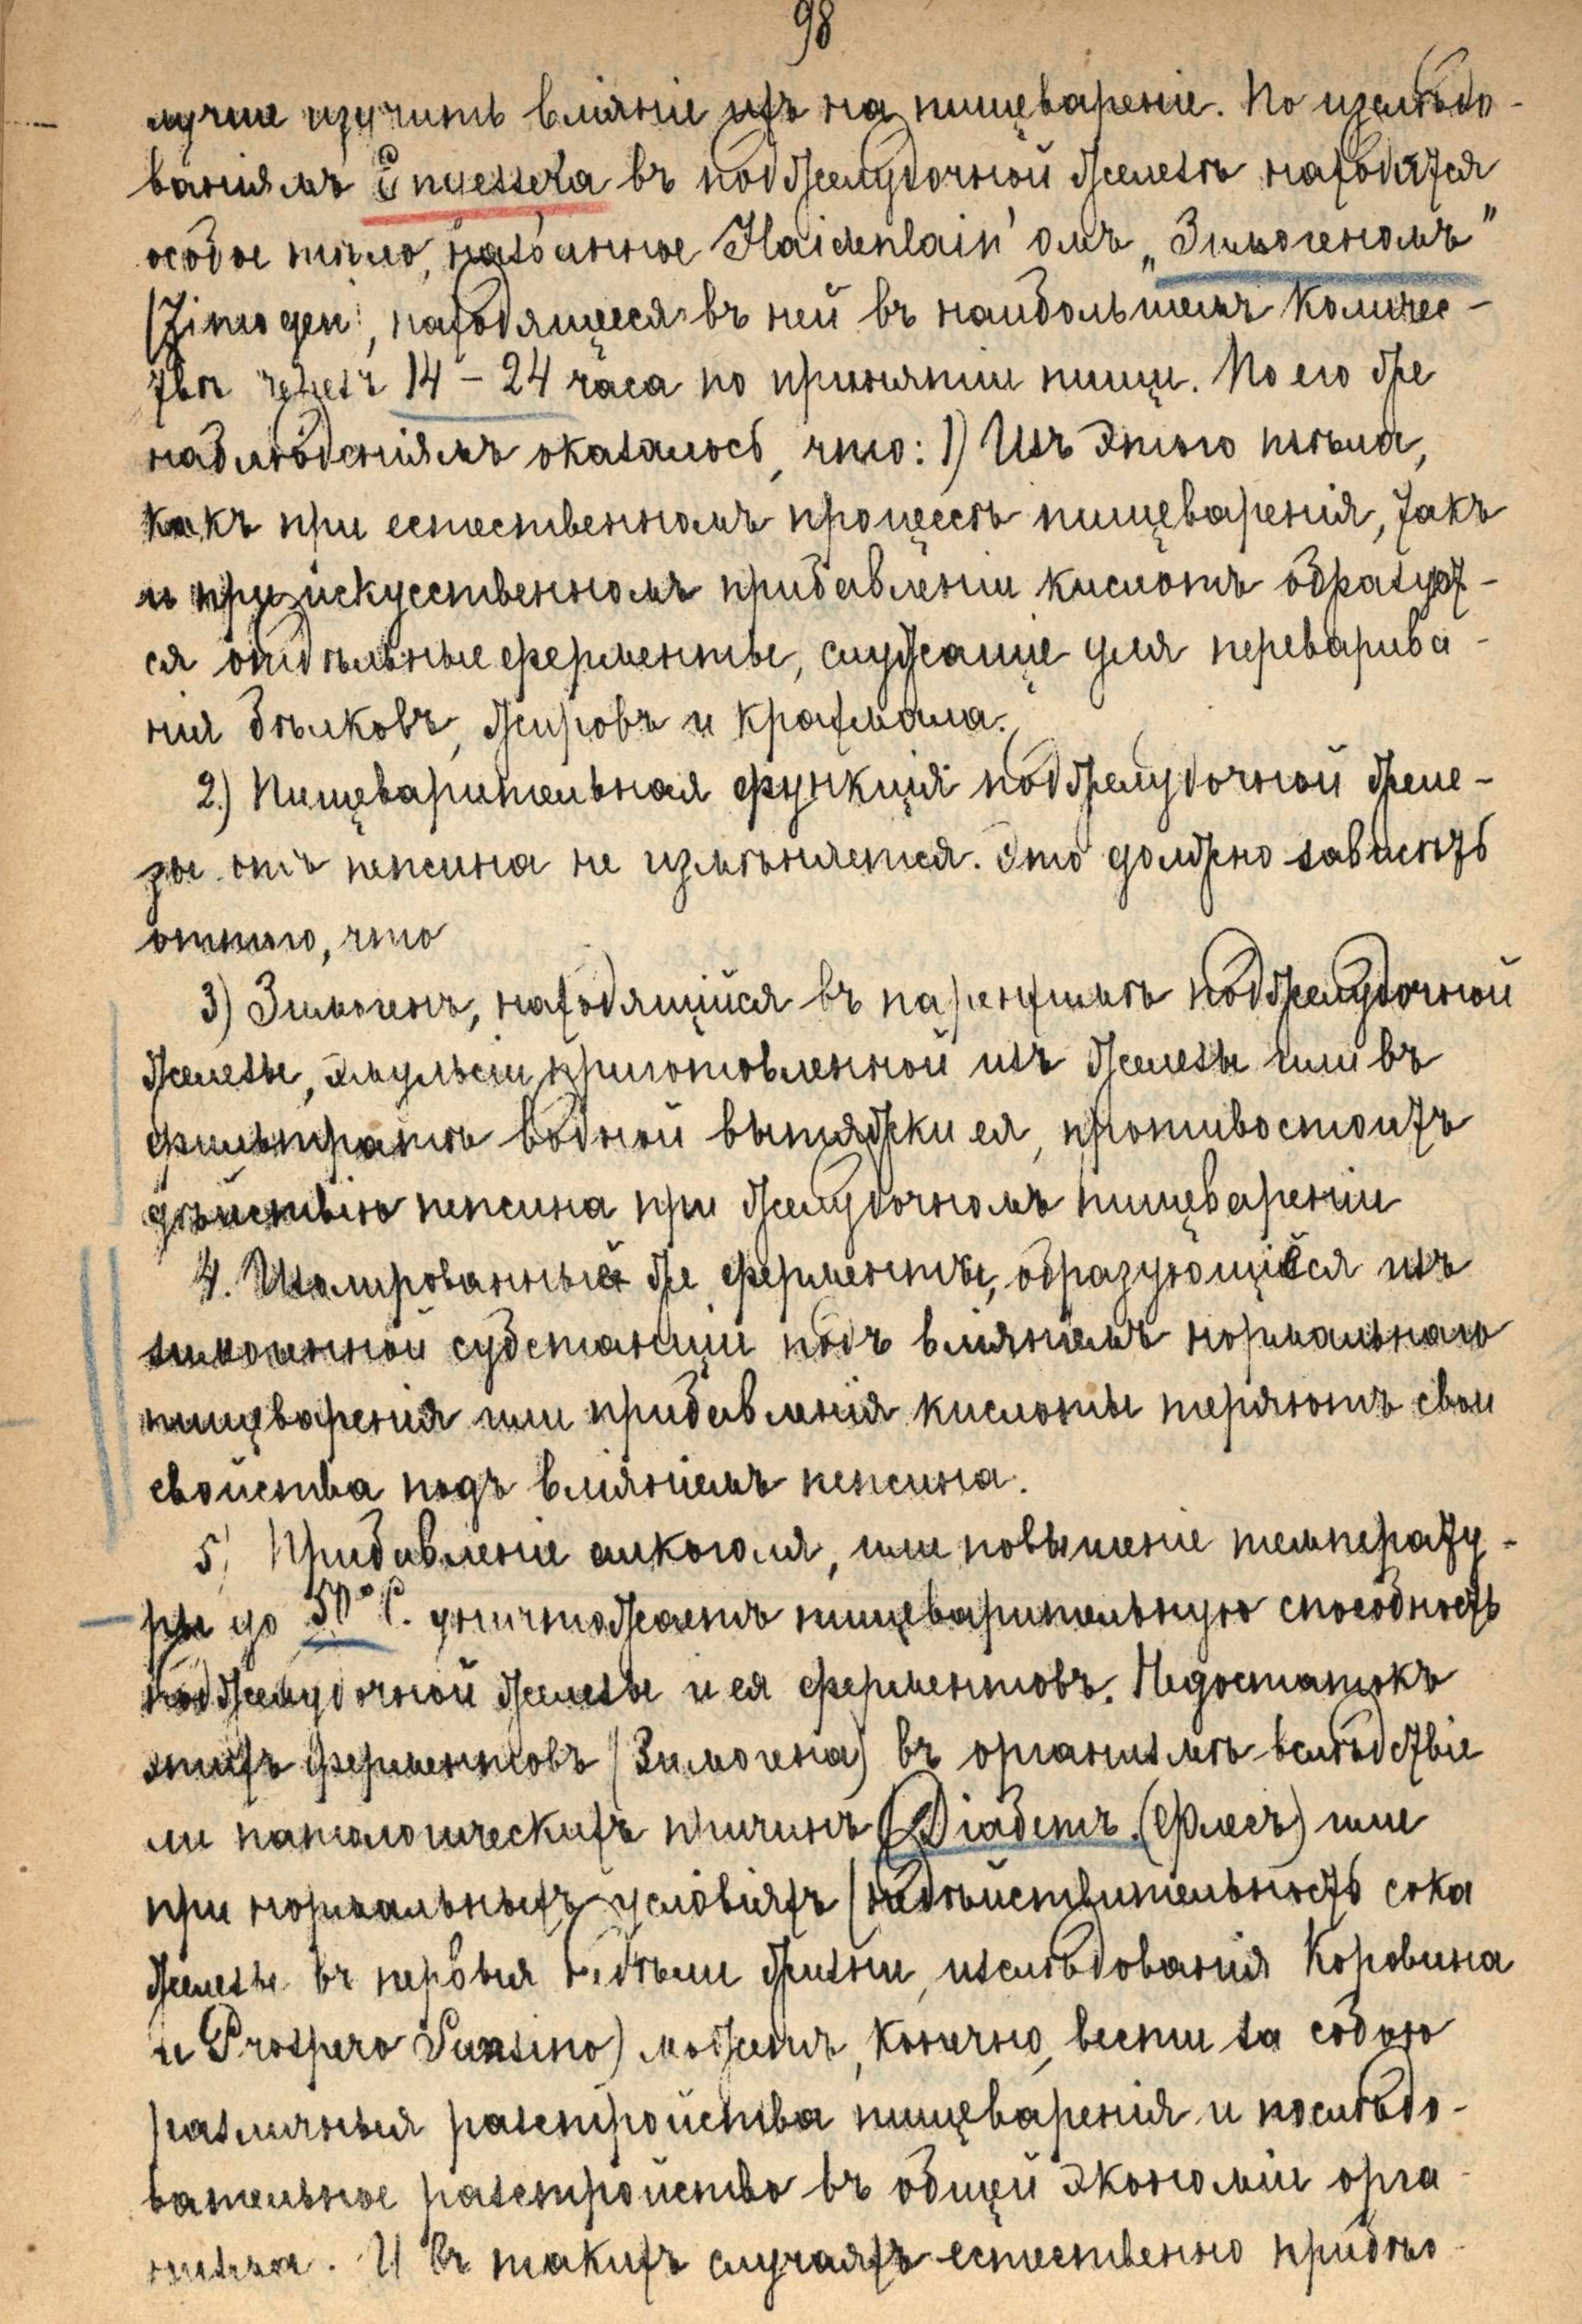 98
лучше изучить вліяніе ихъ на пищевареніе. По изслѣдо-
ваніямъ Engesser'a въ поджелудочной железѣ находится
особое тѣло, названное Haidenlain'омъ „Зимогеномъ"
(Zimogen), находящееся въ ней въ наибольшемъ количес-
твѣ черезъ 14 – 24 часа по принятіи пищи. По его же
наблюденіямъ оказалось, что: 1) Изъ этого тѣла,
какъ при естественномъ процессѣ пищеваренія, такъ
и при искусственномъ прибавленіи кислотъ образует-
ся отдѣльные ферменты, служащіе для перевари­ва-
нія бѣлковъ, жировъ и крахмала.
2.) Пищеварительная функція поджелудочной желе-
зы отъ пепсина не измѣняется. Это должно зависѣть
оттого, что
3) Зимогенъ, находящійся въ паренхимѣ поджелудочной
железы, эмульсіи приготовленной изъ железы или въ
фильтратѣ водной вытяжки ея, противостоитъ
дѣйствію пепсина при желудочномъ пищевареніи
4. Изолированные же ферменты, образующіеся изъ
зимогенной субстанціи подъ вліяніемъ нормальнаго
пищеваренія или прибавленія кислоты теряютъ свои
свойства подъ вліяніемъ пепсина.
5) Прибавленіе алкоголя, или повышеніе температу-
ры до 50° С. уничтожаетъ пищеварительную способность
поджелудочной железы и ея ферментовъ. Недостатокъ
этихъ ферментовъ (Зимогена) въ организмѣ вслѣдствіе
ли патологическихъ причинъ (Діабетъ. (Флесъ) или
при нормальныхъ условіяхъ (недѣйствительность сока
железы въ первыя недѣли жизни, изслѣдованія Коровина
и Prospero Sonsino) можетъ, конечно, вести за собою
различныя разстройства пищеваренія и послѣдо-
вательное разстройство въ общей экономіи орга-
низма. И въ такихъ случаяхъ естественно прибѣ-